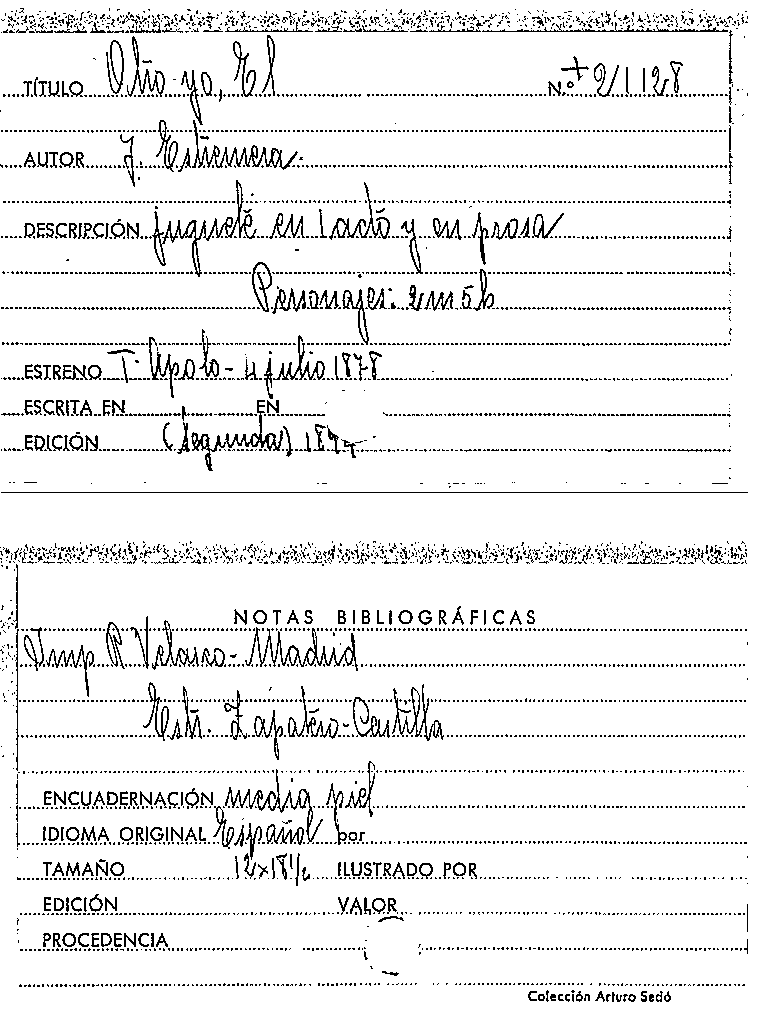 TÍTULO Otro yo, El Nº + 2/1128
AUTOR J. Estremera.
DESCRIPCIÓN juguete en 1 acto y en prosa
Personajes: 2 m 5 h
ESTRENO T. Apolo - 4 julio 1878
ESCRITA EN EN
EDICIÓN (Segunda) 1877
NOTAS BIBLIOGRÁFICAS
Imp R Velasco - Madrid
Estr. Zapatero - Castilla
ENCUADERNACIÓN media piel
IDIOMA ORIGINAL Español por
TAMAÑO 12x18½ ILUSTRADO POR
EDICIÓN VALOR
PROCEDENCIA
Colección Arturo Sedó